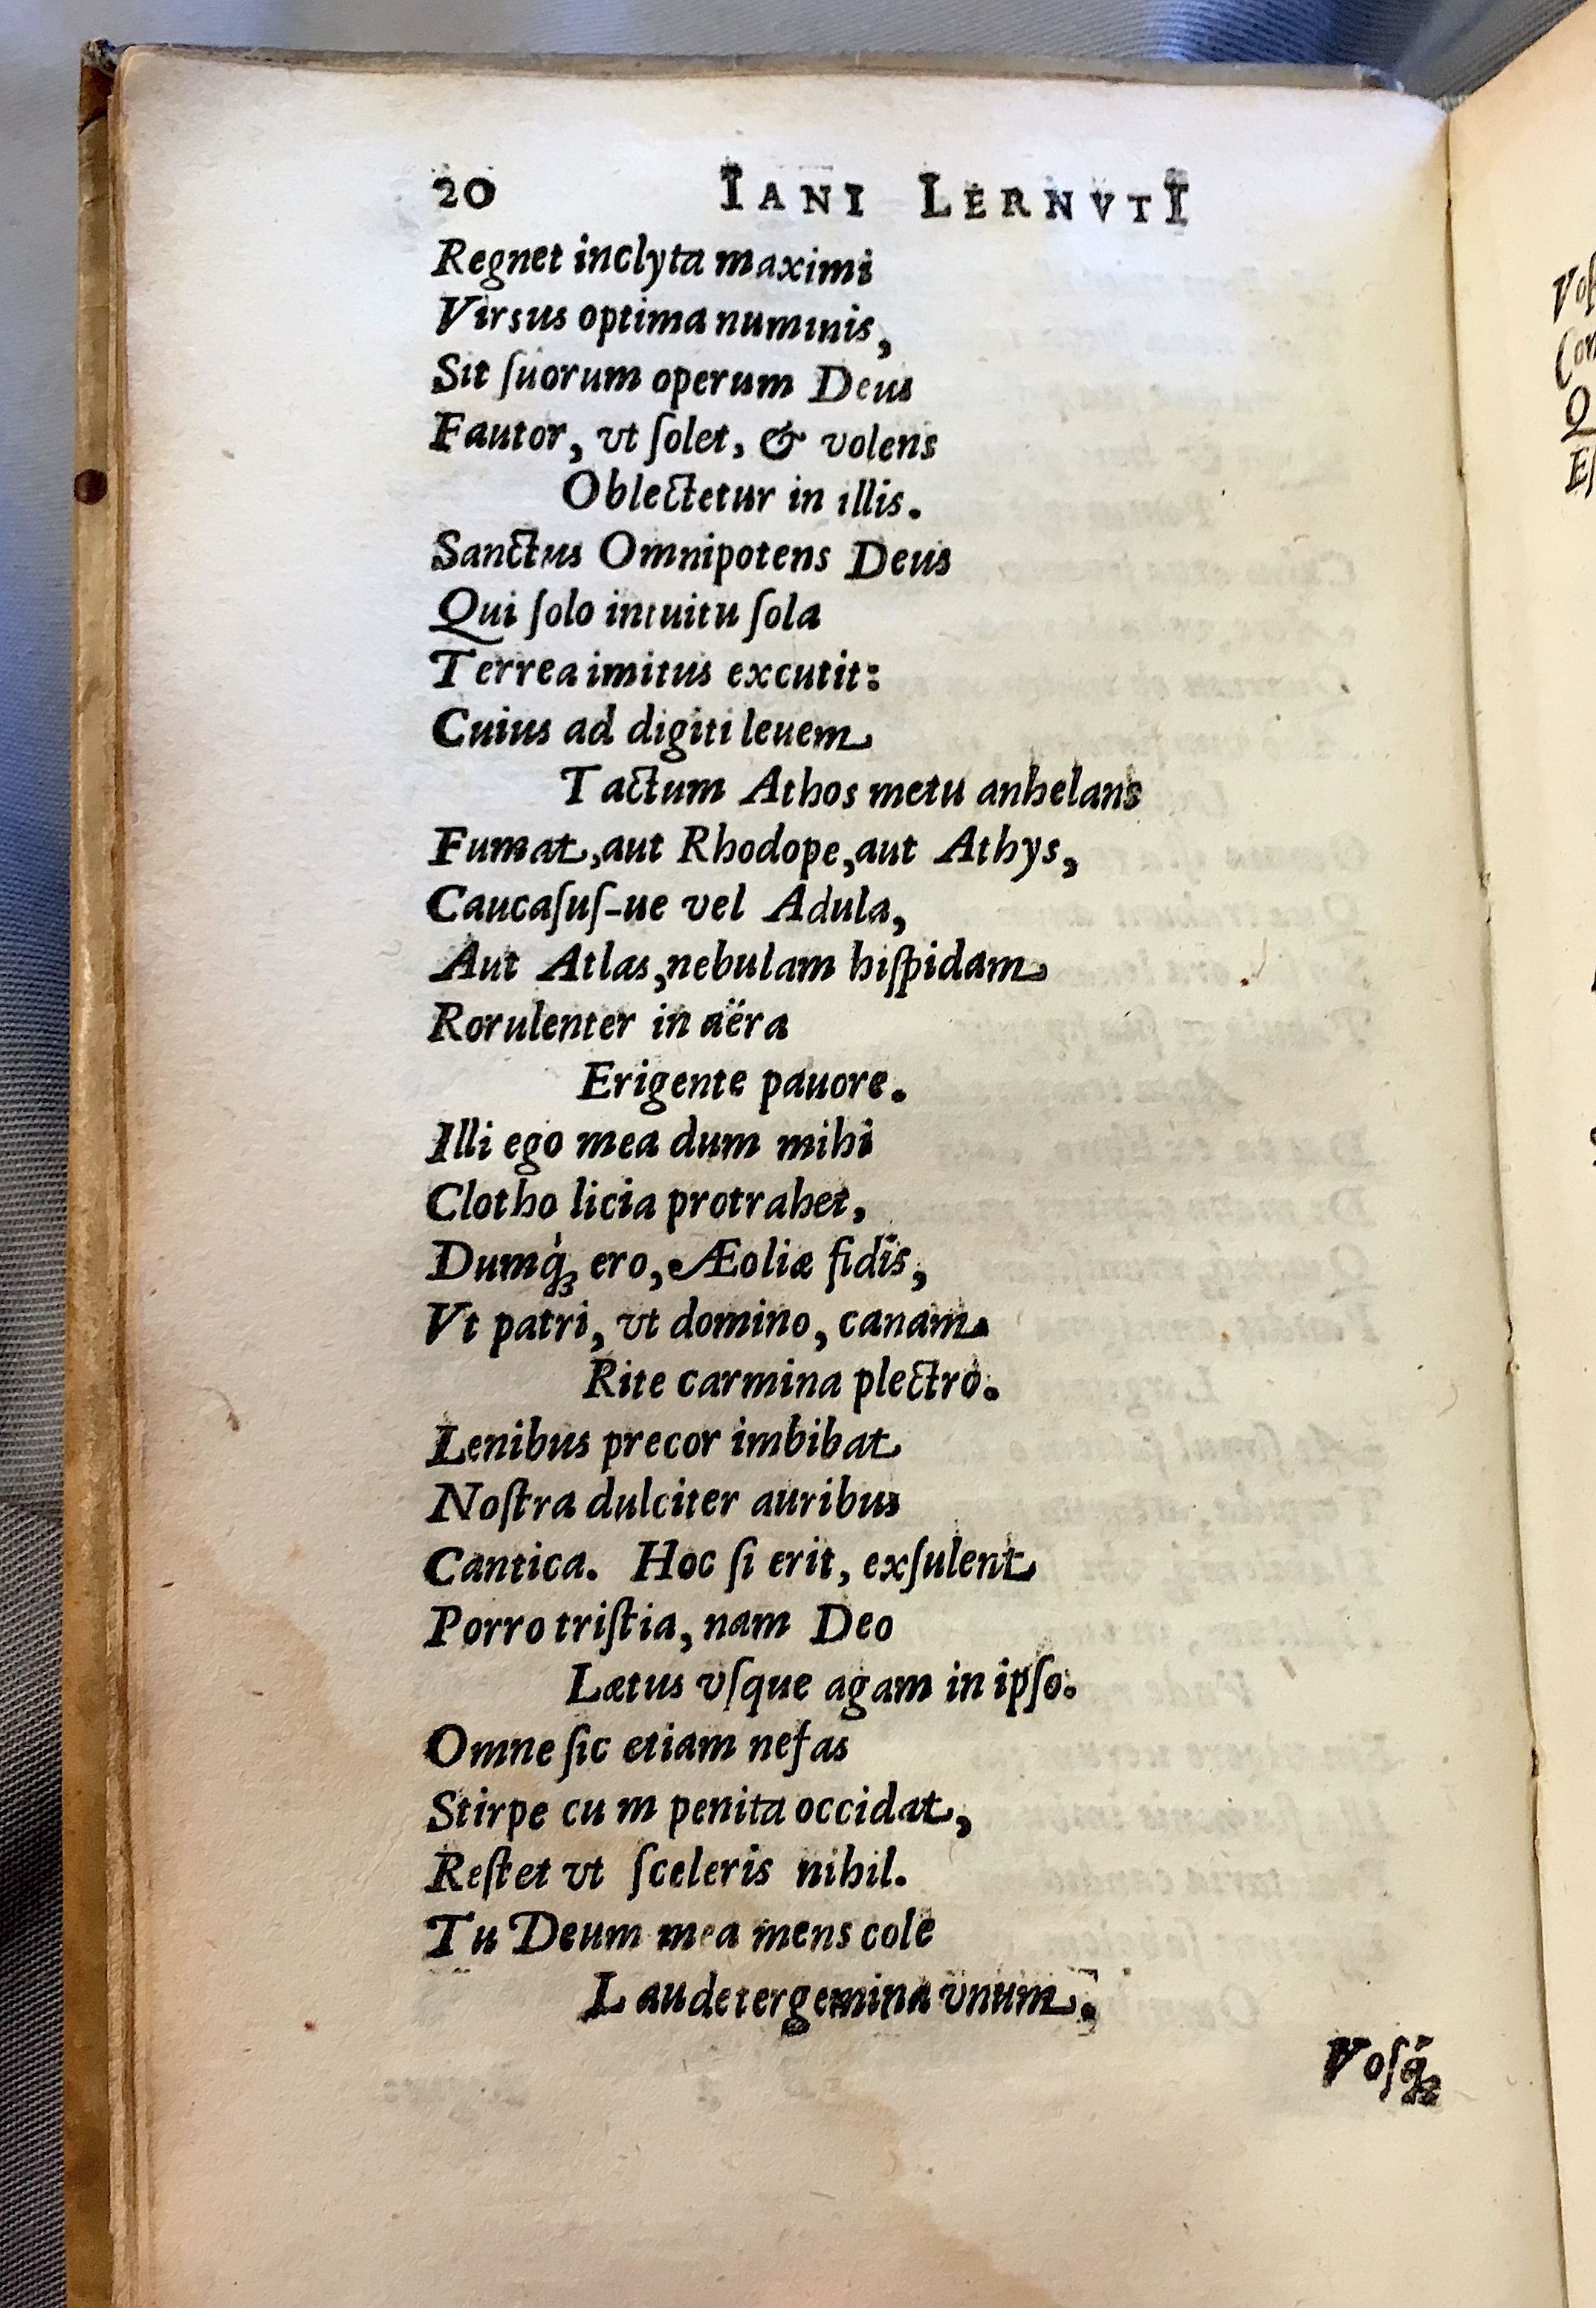 20 IANI LERNVTI
Regnet inclyta maximi
Virsus optima numinis,
Sit ſuorum operum Deus
Fautor, vt ſolet, & volens
Oblectetur in illis.
Sanctus Omnipotens Deus
Qui ſolo intuitu ſola
Terrea imitus excutit:
Cuius ad digiti leuem
Tactum Athos metu anhelans
Fumat, aut Rhodope, aut Athys,
Caucaſuſ-ue vel Adula,
Aut Atlas, nebulam hiſpidam
Rorulenter in aëra
Erigente pauore.
Illi ego mea dum mihi
Clotho licia protrahet,
Dumq́ꝫ ero, Æoliæ fidis,
Vt patri, vt domino, canam
Rite carmina plectro.
Lenibus precor imbibat
Noſtra dulciter auribus
Cantica. Hoc ſi erit, exſulent
Porro triſtia, nam Deo
Lætus vſque agam in ipſo.
Omne ſic etiam nefas
Stirpe cum penita occidat,
Reſtet vt ſceleris nihil.
Tu Deum mea mens cole
Laude tergemina vnum.
Voſq́ꝫ